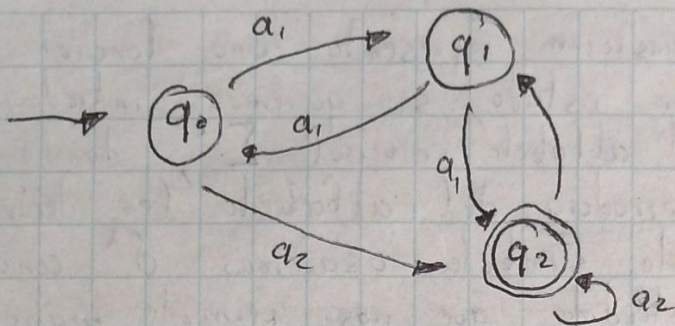 a₁
q₁
q₀
a₁
a₁
q₂
a₂
a₂